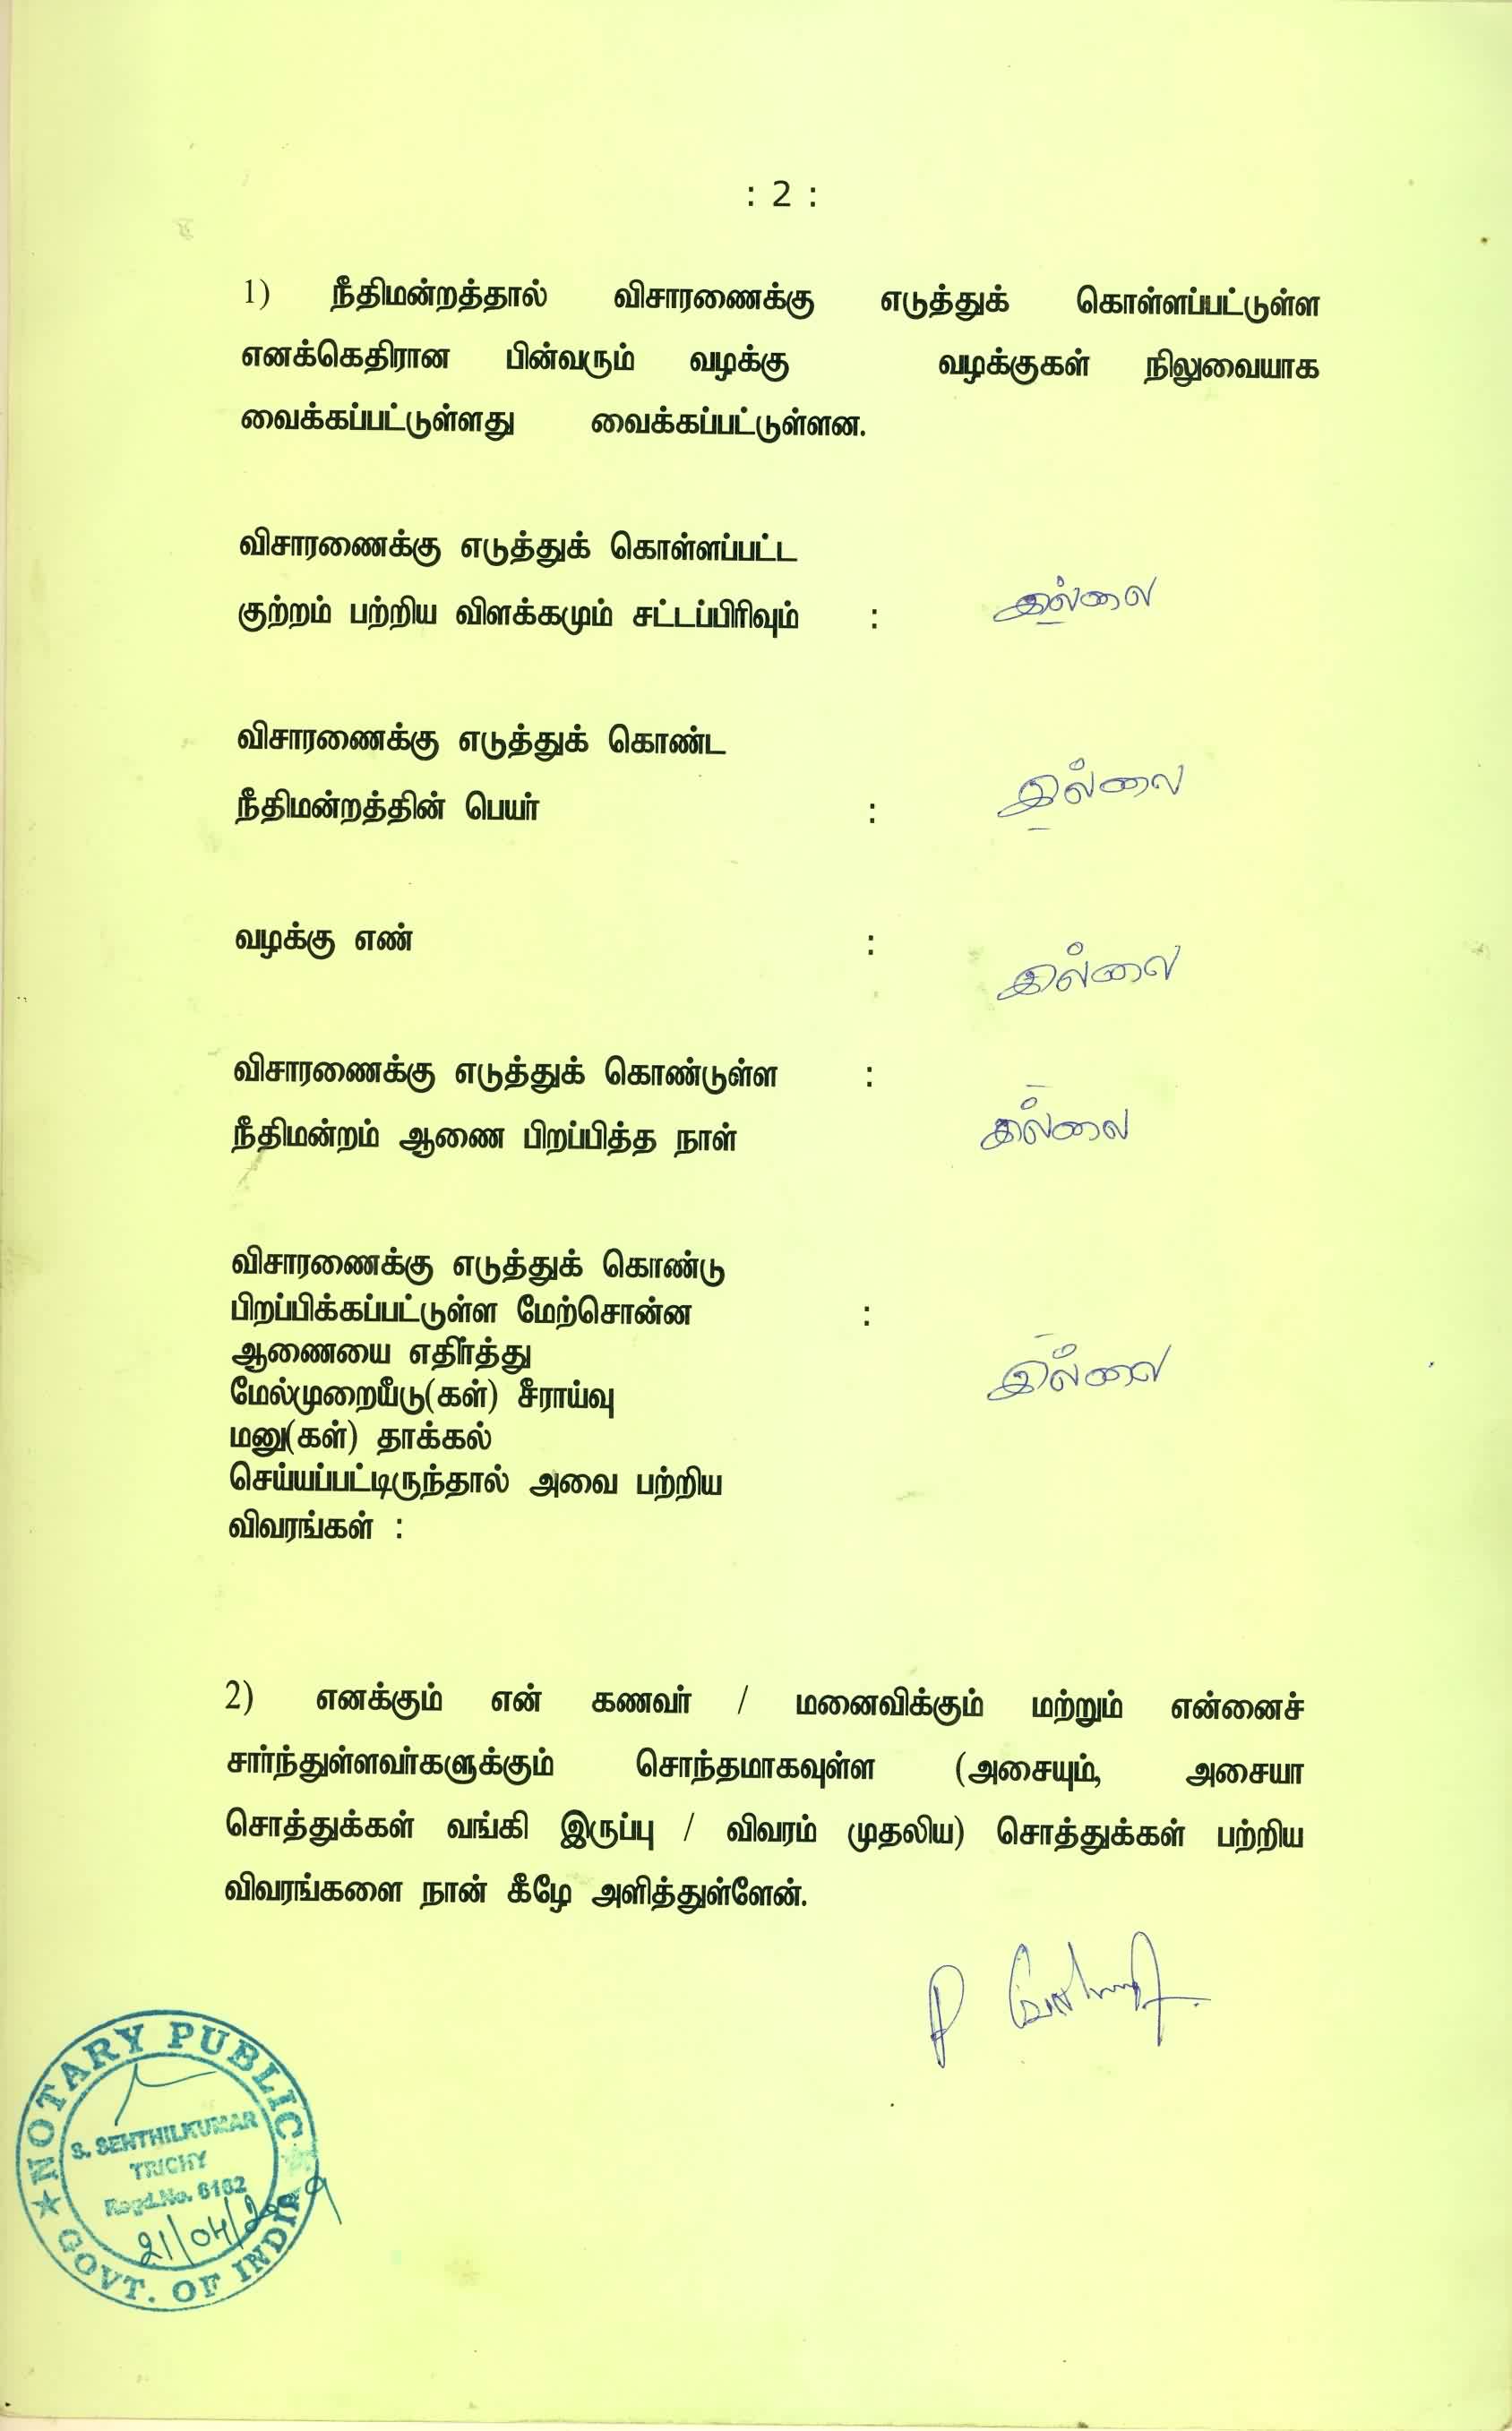 : 2 :
1) நீதிமன்றத்தால் விசாரணைக்கு எடுத்துக் கொள்ளப்பட்டுள்ள
எனக்கெதிரான பின்வரும் வழக்கு வழக்குகள் நிலுவையாக
வைக்கப்பட்டுள்ளது வைக்கப்பட்டுள்ளன.
விசாரணைக்கு எடுத்துக் கொள்ளப்பட்ட
குற்றம் பற்றிய விளக்கமும் சட்டப்பிரிவும் : இல்லை
விசாரணைக்கு எடுத்துக் கொண்ட
நீதிமன்றத்தின் பெயர் : இல்லை
வழக்கு எண் : இல்லை
விசாரணைக்கு எடுத்துக் கொண்டுள்ள :
நீதிமன்றம் ஆணை பிறப்பித்த நாள் இல்லை
விசாரணைக்கு எடுத்துக் கொண்டு
பிறப்பிக்கப்பட்டுள்ள மேற்சொன்ன :
ஆணையை எதிர்த்து இல்லை
மேல்முறையீடு(கள்) சீராய்வு
மனு(கள்) தாக்கல்
செய்யப்பட்டிருந்தால் அவை பற்றிய
விவரங்கள் :
2) எனக்கும் என் கணவர் / மனைவிக்கும் மற்றும் என்னைச்
சார்ந்துள்ளவர்களுக்கும் சொந்தமாகவுள்ள (அசையும், அசையா
சொத்துக்கள் வங்கி இருப்பு / விவரம் முதலிய) சொத்துக்கள் பற்றிய
விவரங்களை நான் கீழே அளித்துள்ளேன்.
NOTARY PUBLIC
S. SENTHILKUMAR
TRICHY
Regd.No. 6162
21/04/2009
GOVT. OF INDIA